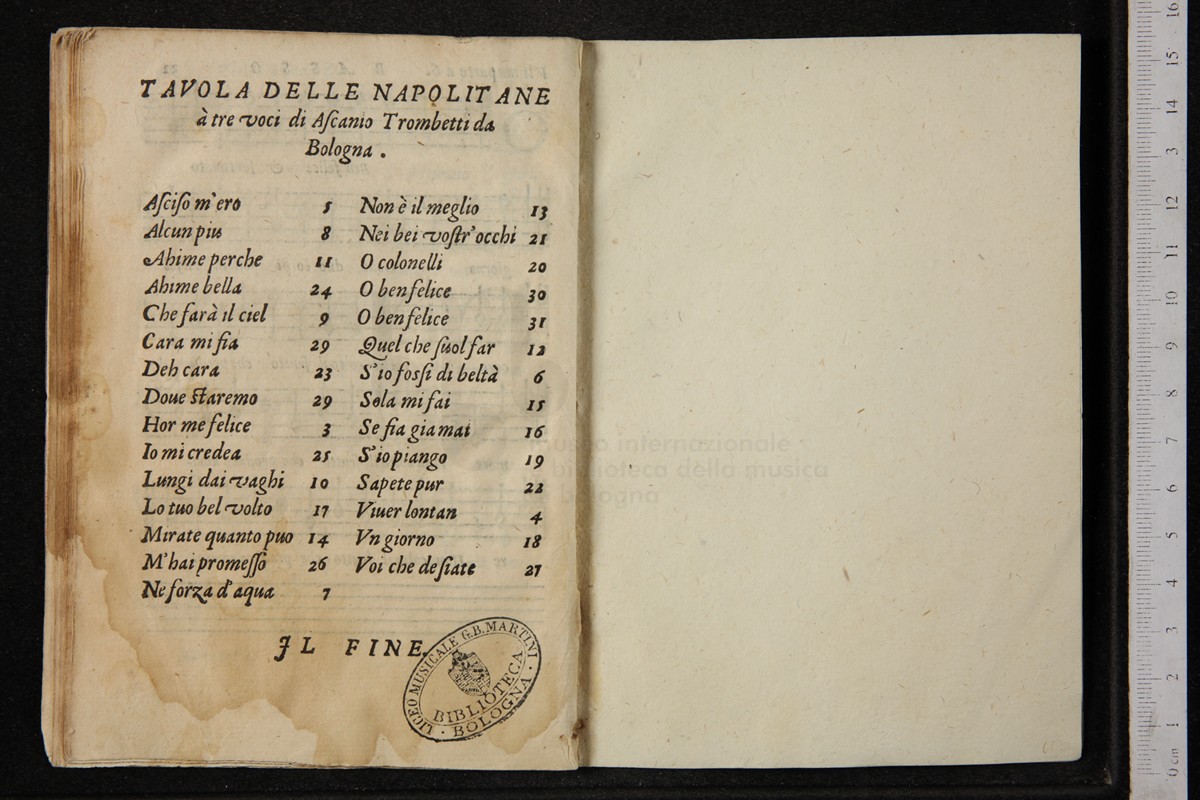 TAVOLA DELLE NAPOLITANE
à tre voci di Aſcanio Trombetti da
Bologna .
Aſciſo m'ero 5
Alcun piu 8
Ahime perche 11
Ahime bella 24
Che farà il ciel 9
Cara mi fia 29
Deh cara 23
Doue ſtaremo 29
Hor me felice 3
Io mi credea 25
Lungi dai vaghi 10
Lo tuo bel volto 17
Mirate quanto puo 14
M'hai promeſſo 26
Ne forza d'aqua 7
Non è il meglio 13
Nei bei voſtr'occhi 21
O colonelli 20
O ben felice 30
O ben felice 31
Quel che ſuol far 12
S'io foſſi di beltà 6
Sola mi fai 15
Se fia gia mai 16
S'io piango 19
Sapete pur 22
Viuer lontan 4
Vn giorno 18
Voi che deſiate 27
IL FINE.
LICEO MUSICALE G.B. MARTINI
BIBLIOTECA
· BOLOGNA ·
museo internazionale
biblioteca della musica
bologna
0 cm 1 2 3 4 5 6 7 8 9 10 11 12 13 14 15 16